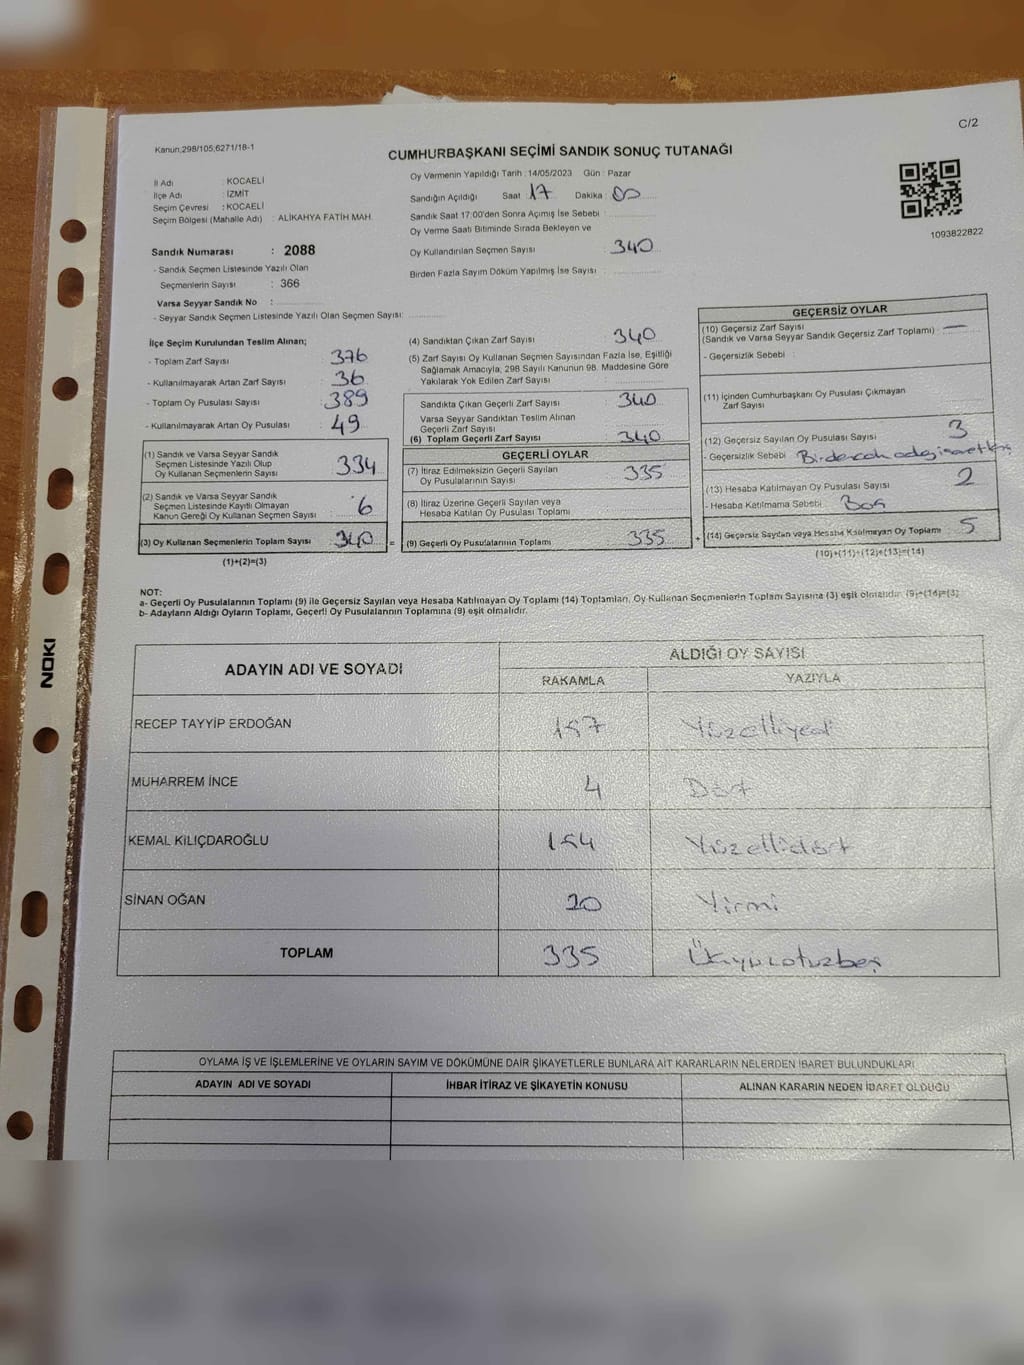 C/2
Kanun,298/105,6271/18-1
CUMHURBAŞKANI SEÇİMİ SANDIK SONUÇ TUTANAĞI
1093822822
İl Adı : KOCAELİ
İlçe Adı : İZMİT
Seçim Çevresi : KOCAELİ
Seçim Bölgesi (Mahalle Adı) : ALİKAHYA FATİH MAH.
Sandık Numarası : 2088
- Sandık Seçmen Listesinde Yazılı Olan
Seçmenlerin Sayısı : 366
Varsa Seyyar Sandık No :
- Seyyar Sandık Seçmen Listesinde Yazılı Olan Seçmen Sayısı:
Oy Vermenin Yapıldığı Tarih : 14/05/2023 Gün : Pazar
Sandığın Açıldığı Saat 17 Dakika : 00
Sandık Saat 17:00'den Sonra Açımış İse Sebebi :
Oy Verme Saati Bitiminde Sırada Bekleyen ve
Oy Kullandırılan Seçmen Sayısı : 340
Birden Fazla Sayım Döküm Yapılmış İse Sayısı :
İlçe Seçim Kurulundan Teslim Alınan;
- Toplam Zarf Sayısı : 376
- Kullanılmayarak Artan Zarf Sayısı : 36
- Toplam Oy Pusulası Sayısı : 389
- Kullanılmayarak Artan Oy Pusulası : 49
(1) Sandık ve Varsa Seyyar Sandık
Seçmen Listesinde Yazılı Olup
Oy Kullanan Seçmenlerin Sayısı : 334
(2) Sandık ve Varsa Seyyar Sandık
Seçmen Listesinde Kayıtlı Olmayan
Kanun Gereği Oy Kullanan Seçmen Sayısı : 6
(3) Oy Kullanan Seçmenlerin Toplam Sayısı : 340 =
(1)+(2)=(3)
(4) Sandıktan Çıkan Zarf Sayısı : 340
(5) Zarf Sayısı Oy Kullanan Seçmen Sayısından Fazla İse, Eşitliği
Sağlamak Amacıyla, 298 Sayılı Kanunun 98. Maddesine Göre
Yakılarak Yok Edilen Zarf Sayısı :
Sandıkta Çıkan Geçerli Zarf Sayısı : 340
Varsa Seyyar Sandıktan Teslim Alınan
Geçerli Zarf Sayısı :
(6) Toplam Geçerli Zarf Sayısı : 340
GEÇERLİ OYLAR
(7) İtiraz Edilmeksizin Geçerli Sayılan
Oy Pusulalarının Sayısı : 335
(8) İtiraz Üzerine Geçerli Sayılan veya
Hesaba Katılan Oy Pusulası Toplamı :
(9) Geçerli Oy Pusulalarının Toplamı : 335 +
GEÇERSİZ OYLAR
(10) Geçersiz Zarf Sayısı
(Sandık ve Varsa Seyyar Sandık Geçersiz Zarf Toplamı) : —
- Geçersizlik Sebebi :
(11) İçinden Cumhurbaşkanı Oy Pusulası Çıkmayan
Zarf Sayısı
(12) Geçersiz Sayılan Oy Pusulası Sayısı : 3
- Geçersizlik Sebebi :
(13) Hesaba Katılmayan Oy Pusulası Sayısı : 2
- Hesaba Katılmama Sebebi : Boş
(14) Geçersiz Sayılan veya Hesaba Katılmayan Oy Toplamı : 5
(10)+(11)+(12)+(13)=(14)
NOT:
a- Geçerli Oy Pusulalarının Toplamı (9) ile Geçersiz Sayılan veya Hesaba Katılmayan Oy Toplamı (14) Toplamları, Oy Kullanan Seçmenlerin Toplam Sayısına (3) eşit olmalıdır. (9)+(14)=(3)
b- Adayların Aldığı Oyların Toplamı, Geçerli Oy Pusulalarının Toplamına (9) eşit olmalıdır.
ADAYIN ADI VE SOYADI ALDIĞI OY SAYISI
RAKAMLA YAZIYLA
RECEP TAYYİP ERDOĞAN 157 Yüzelliyedi
MUHARREM İNCE 4 Dört
KEMAL KILIÇDAROĞLU 154 Yüzellidört
SİNAN OĞAN 20 Yirmi
TOPLAM 335 Üçyüzotuzbeş
OYLAMA İŞ VE İŞLEMLERİNE VE OYLARIN SAYIM VE DÖKÜMÜNE DAİR ŞİKAYETLERLE BUNLARA AİT KARARLARIN NELERDEN İBARET BULUNDUKLARI
ADAYIN ADI VE SOYADI İHBAR İTİRAZ VE ŞİKAYETİN KONUSU ALINAN KARARIN NEDEN İBARET OLDUĞU
NOKI